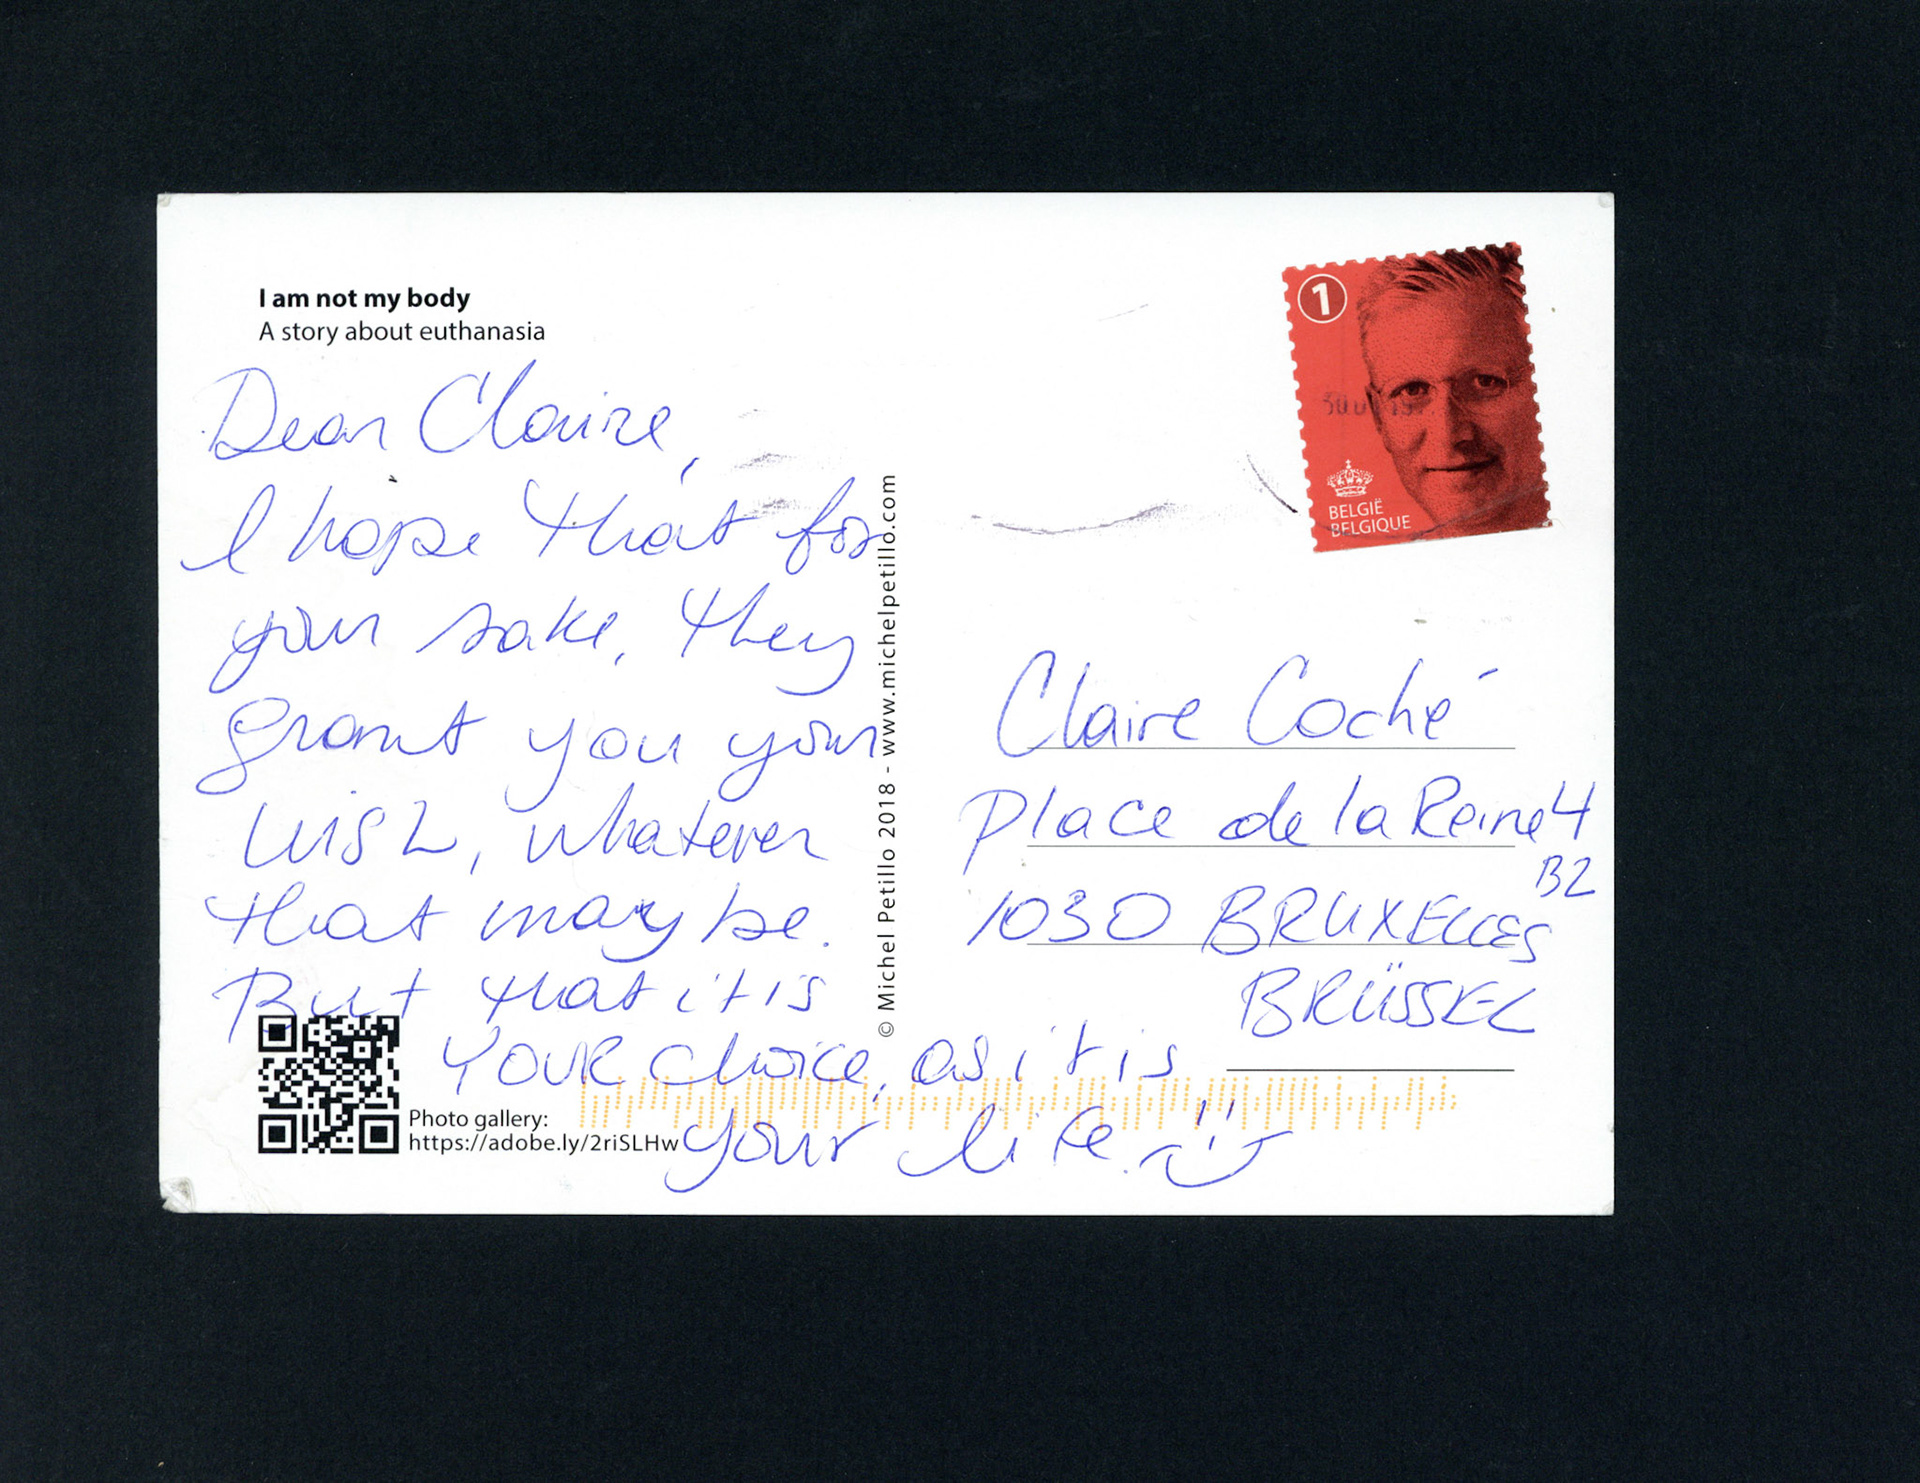 I am not my body
A story about euthanasia
Dear Claire,
I hope that for
your sake, they
grant you your
wish, whatever
that may be.
But that it is
YOUR choice, as it is
your life.
Photo gallery:
https://adobe.ly/2riSLHw
© Michel Petillo 2018 - www.michelpetillo.com
1
BELGIË
BELGIQUE
Claire Coché
Place de la Reine 4
B2
1030 BRUXELLES
BRÜSSEL